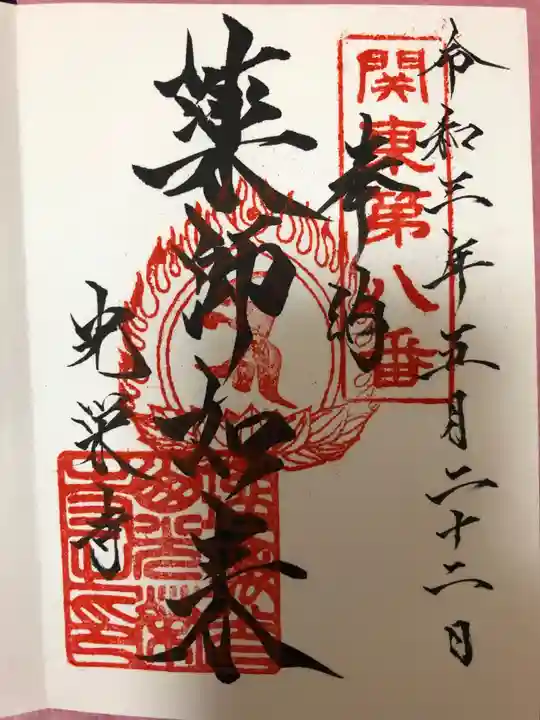 令和三年五月二十二日
関東第八番
奉拝
薬師如来
光栄寺